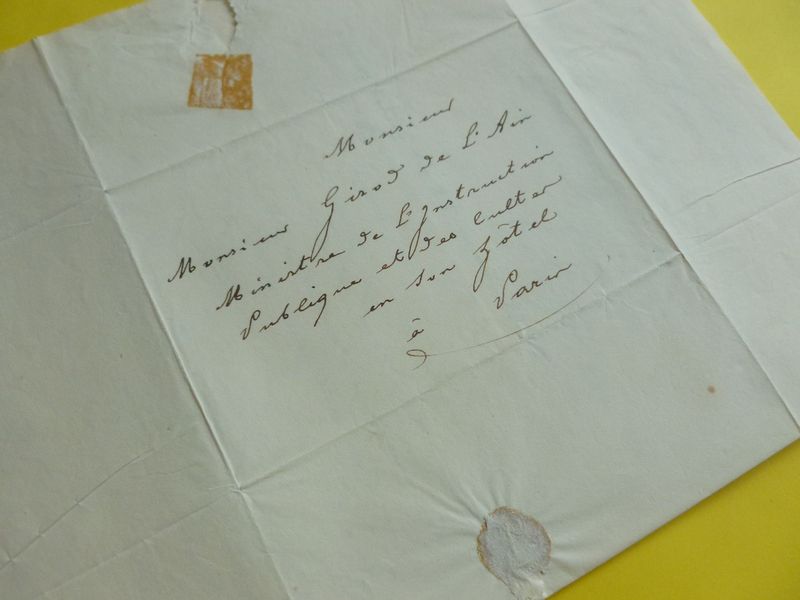 Monsieur
Monsieur Girod de L'Ain
Ministre de L'Instruction
Publique et des Cultes
en son hôtel
à Paris